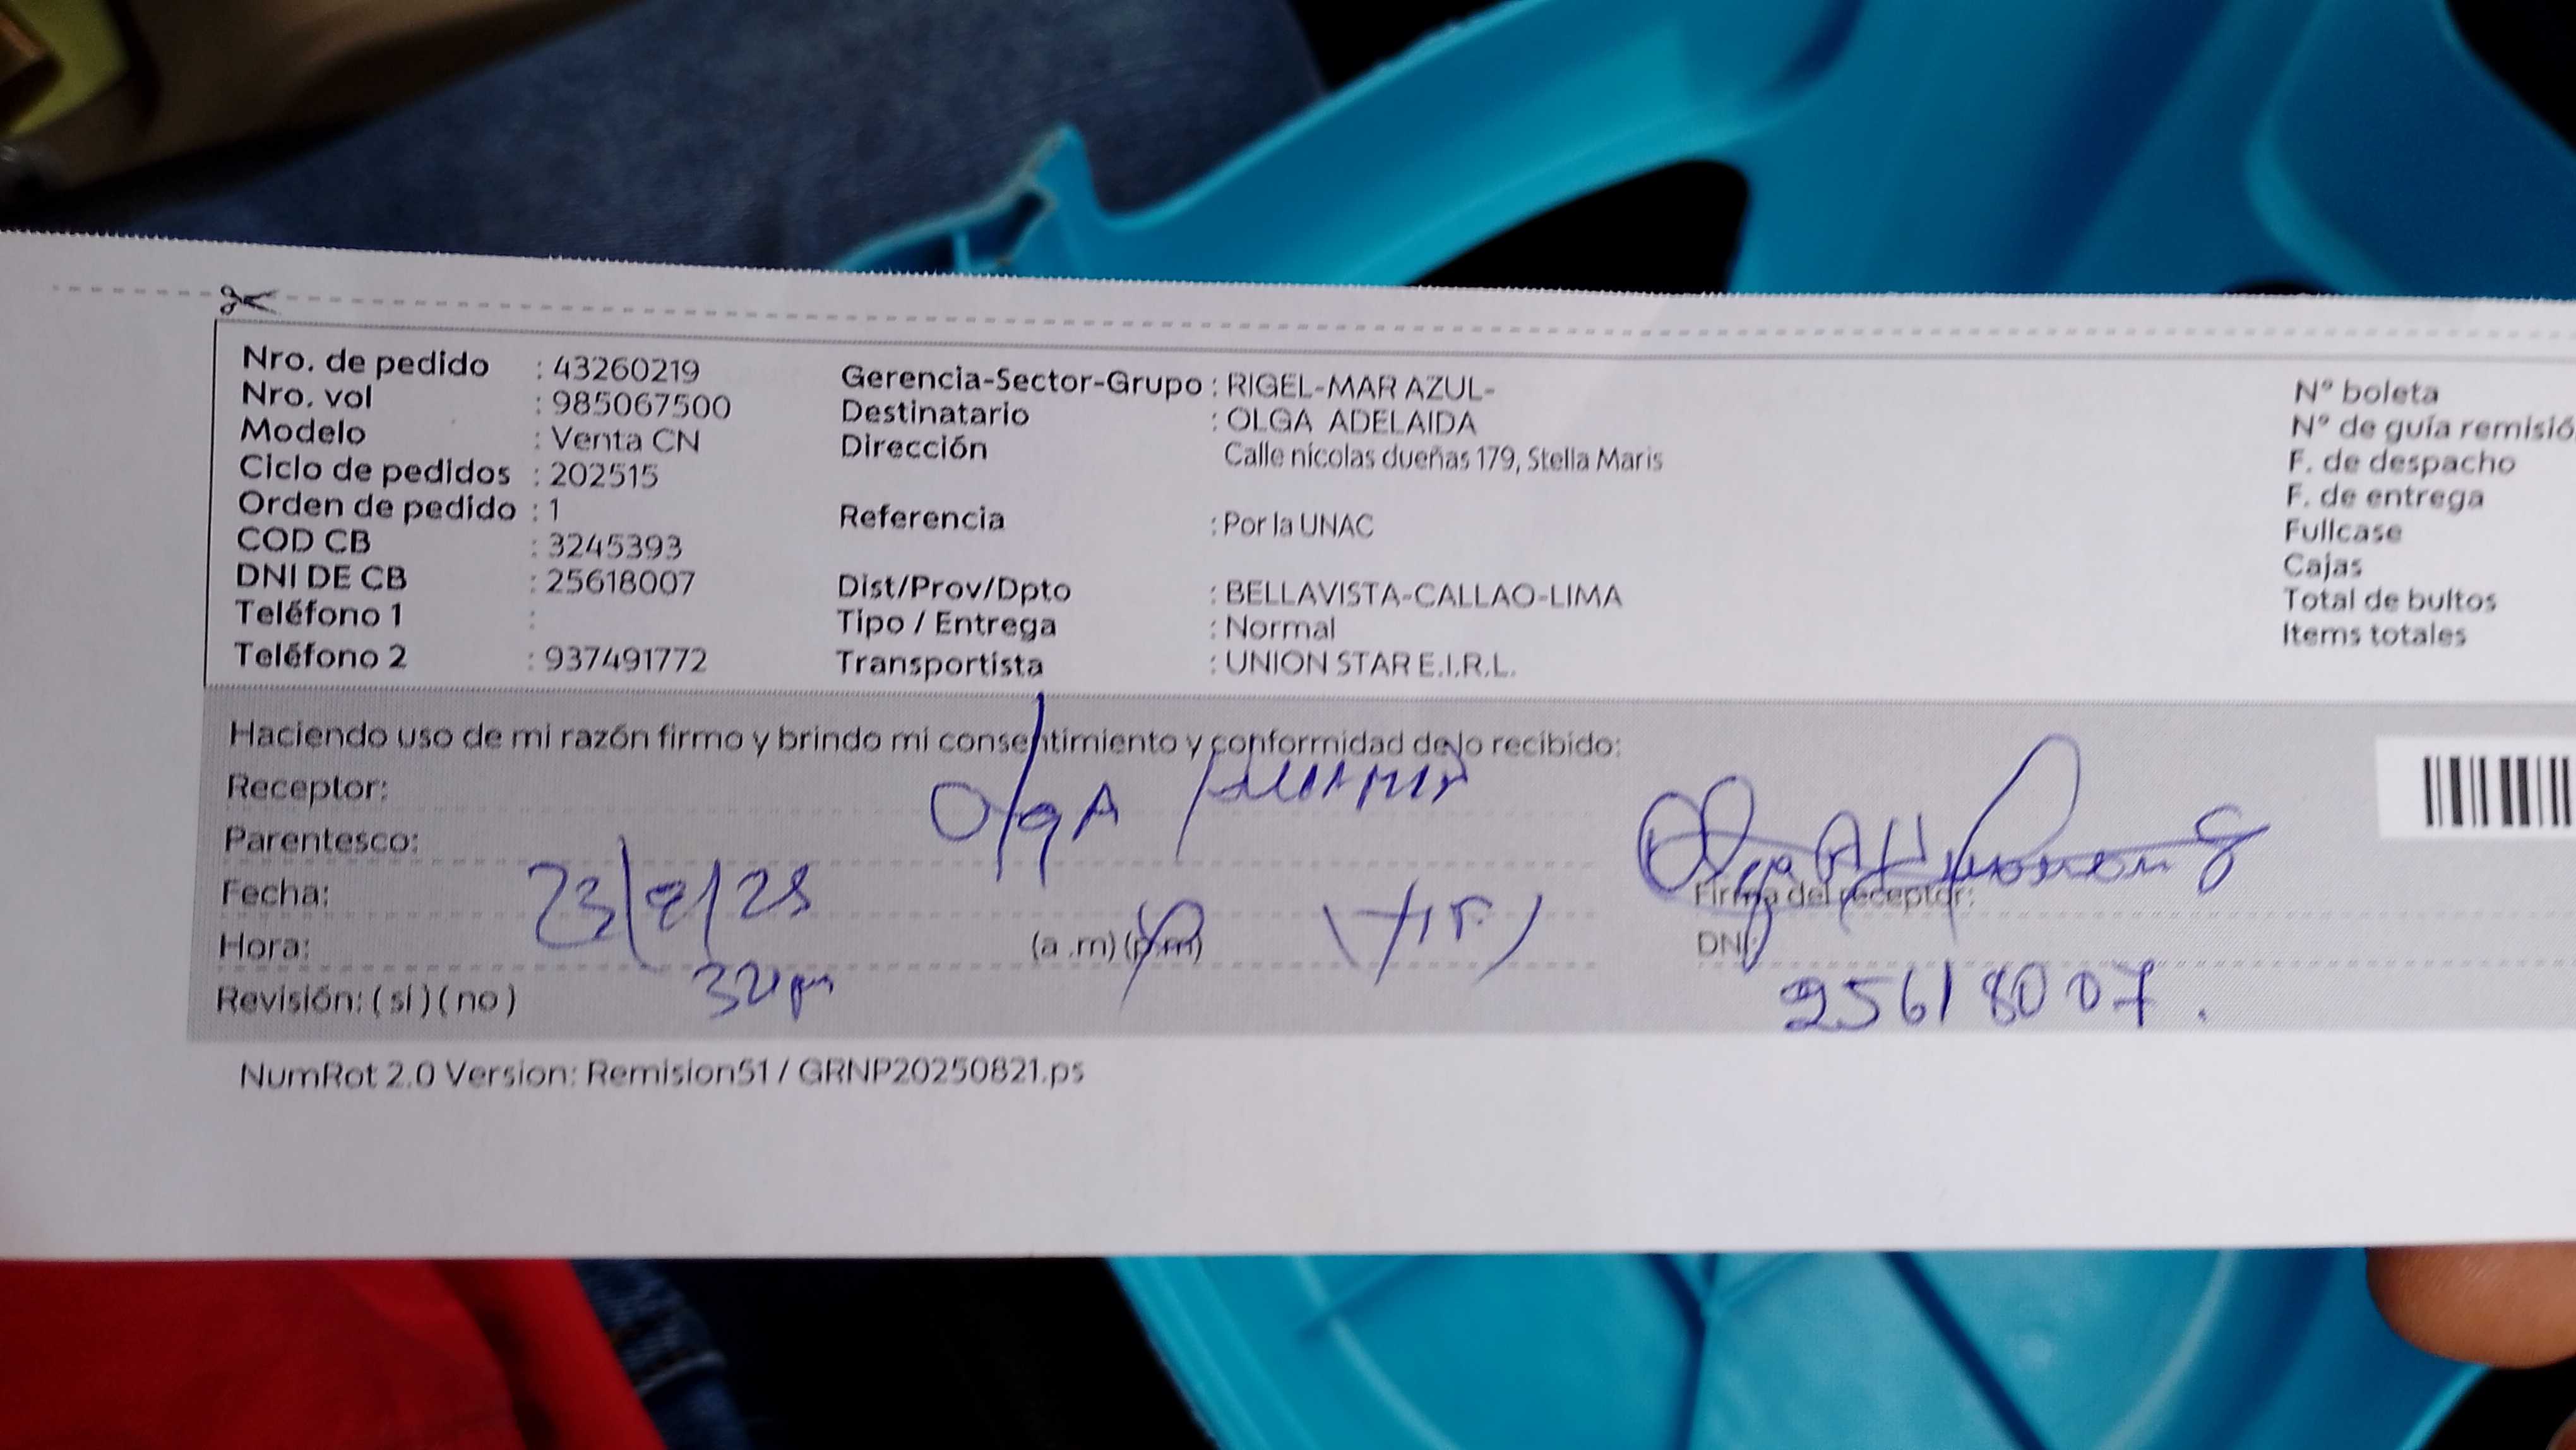 Nro. de pedido : 43260219
Nro. vol : 985067500
Modelo : Venta CN
Ciclo de pedidos : 202515
Orden de pedido : 1
COD CB : 3245393
DNI DE CB : 25618007
Teléfono 1 :
Teléfono 2 : 937491772
Gerencia-Sector-Grupo : RIGEL-MAR AZUL-
Destinatario : OLGA ADELAIDA
Dirección Calle nicolas dueñas 179, Stella Maris
Referencia : Por la UNAC
Dist/Prov/Dpto : BELLAVISTA-CALLAO-LIMA
Tipo / Entrega : Normal
Transportista : UNION STAR E.I.R.L.
N° boleta
N° de guía remisió
F. de despacho
F. de entrega
Fullcase
Cajas
Total de bultos
Items totales
Haciendo uso de mi razón firmo y brindo mi consentimiento y conformidad de lo recibido:
Receptor: OlgA
Parentesco:
Fecha:
Hora: (a .m) (p.m)
Revisión: ( si ) ( no )
Firma del receptor:
DNI:
25618007.
NumRot 2.0 Version: Remision51 / GRNP20250821.ps